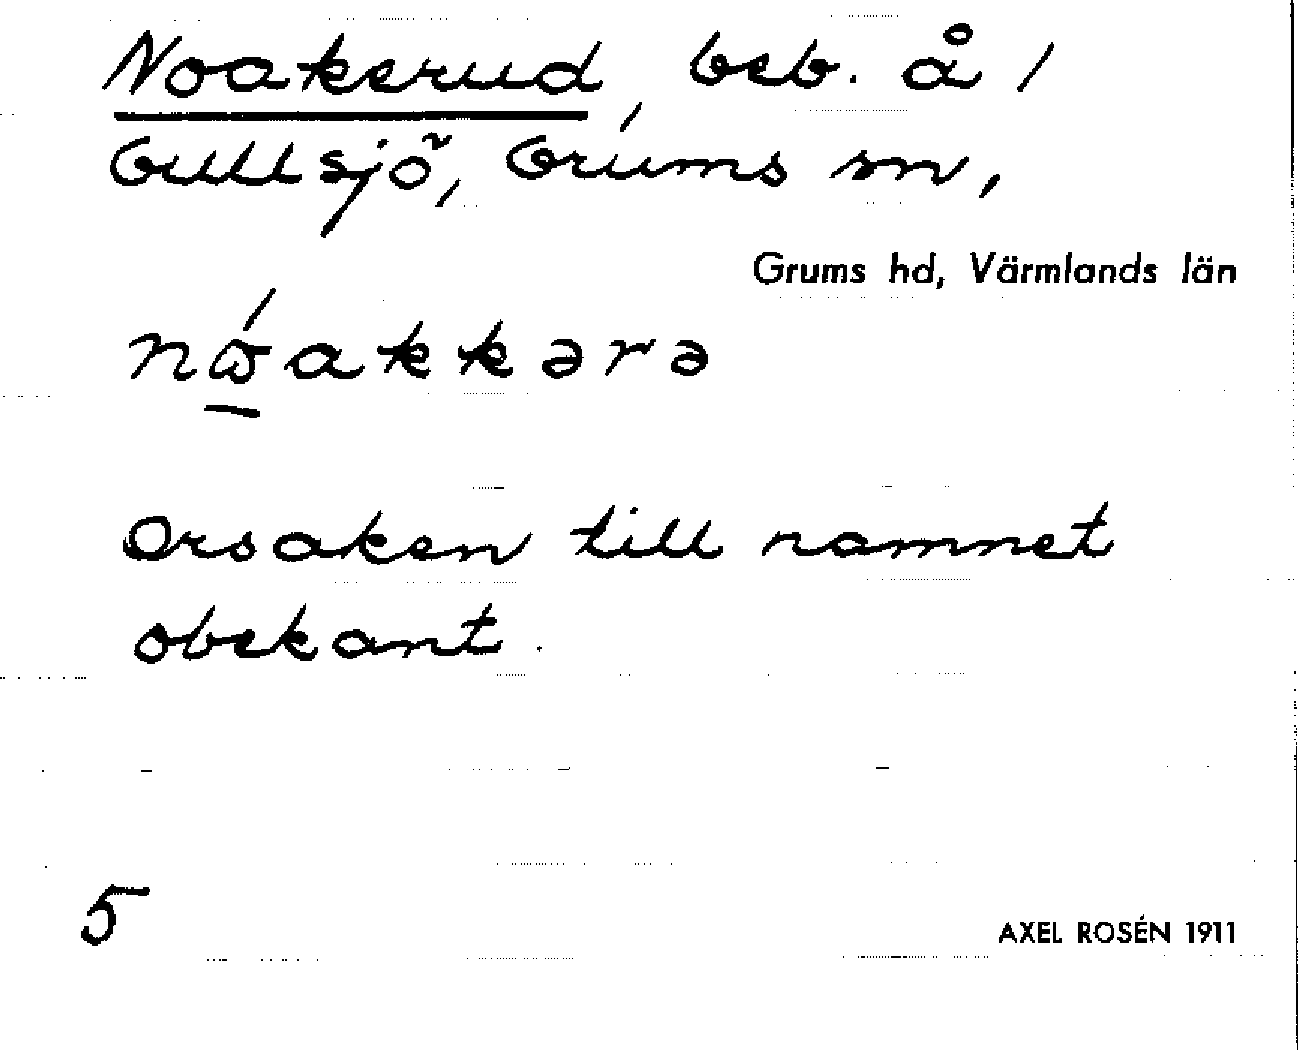 Noakerud, beb. å 1
Gullsjö, Grums sn,
Grums hd, Värmlands län
nώakkərə
Orsaken till namnet
obekant.
5
AXEL ROSÉN 1911